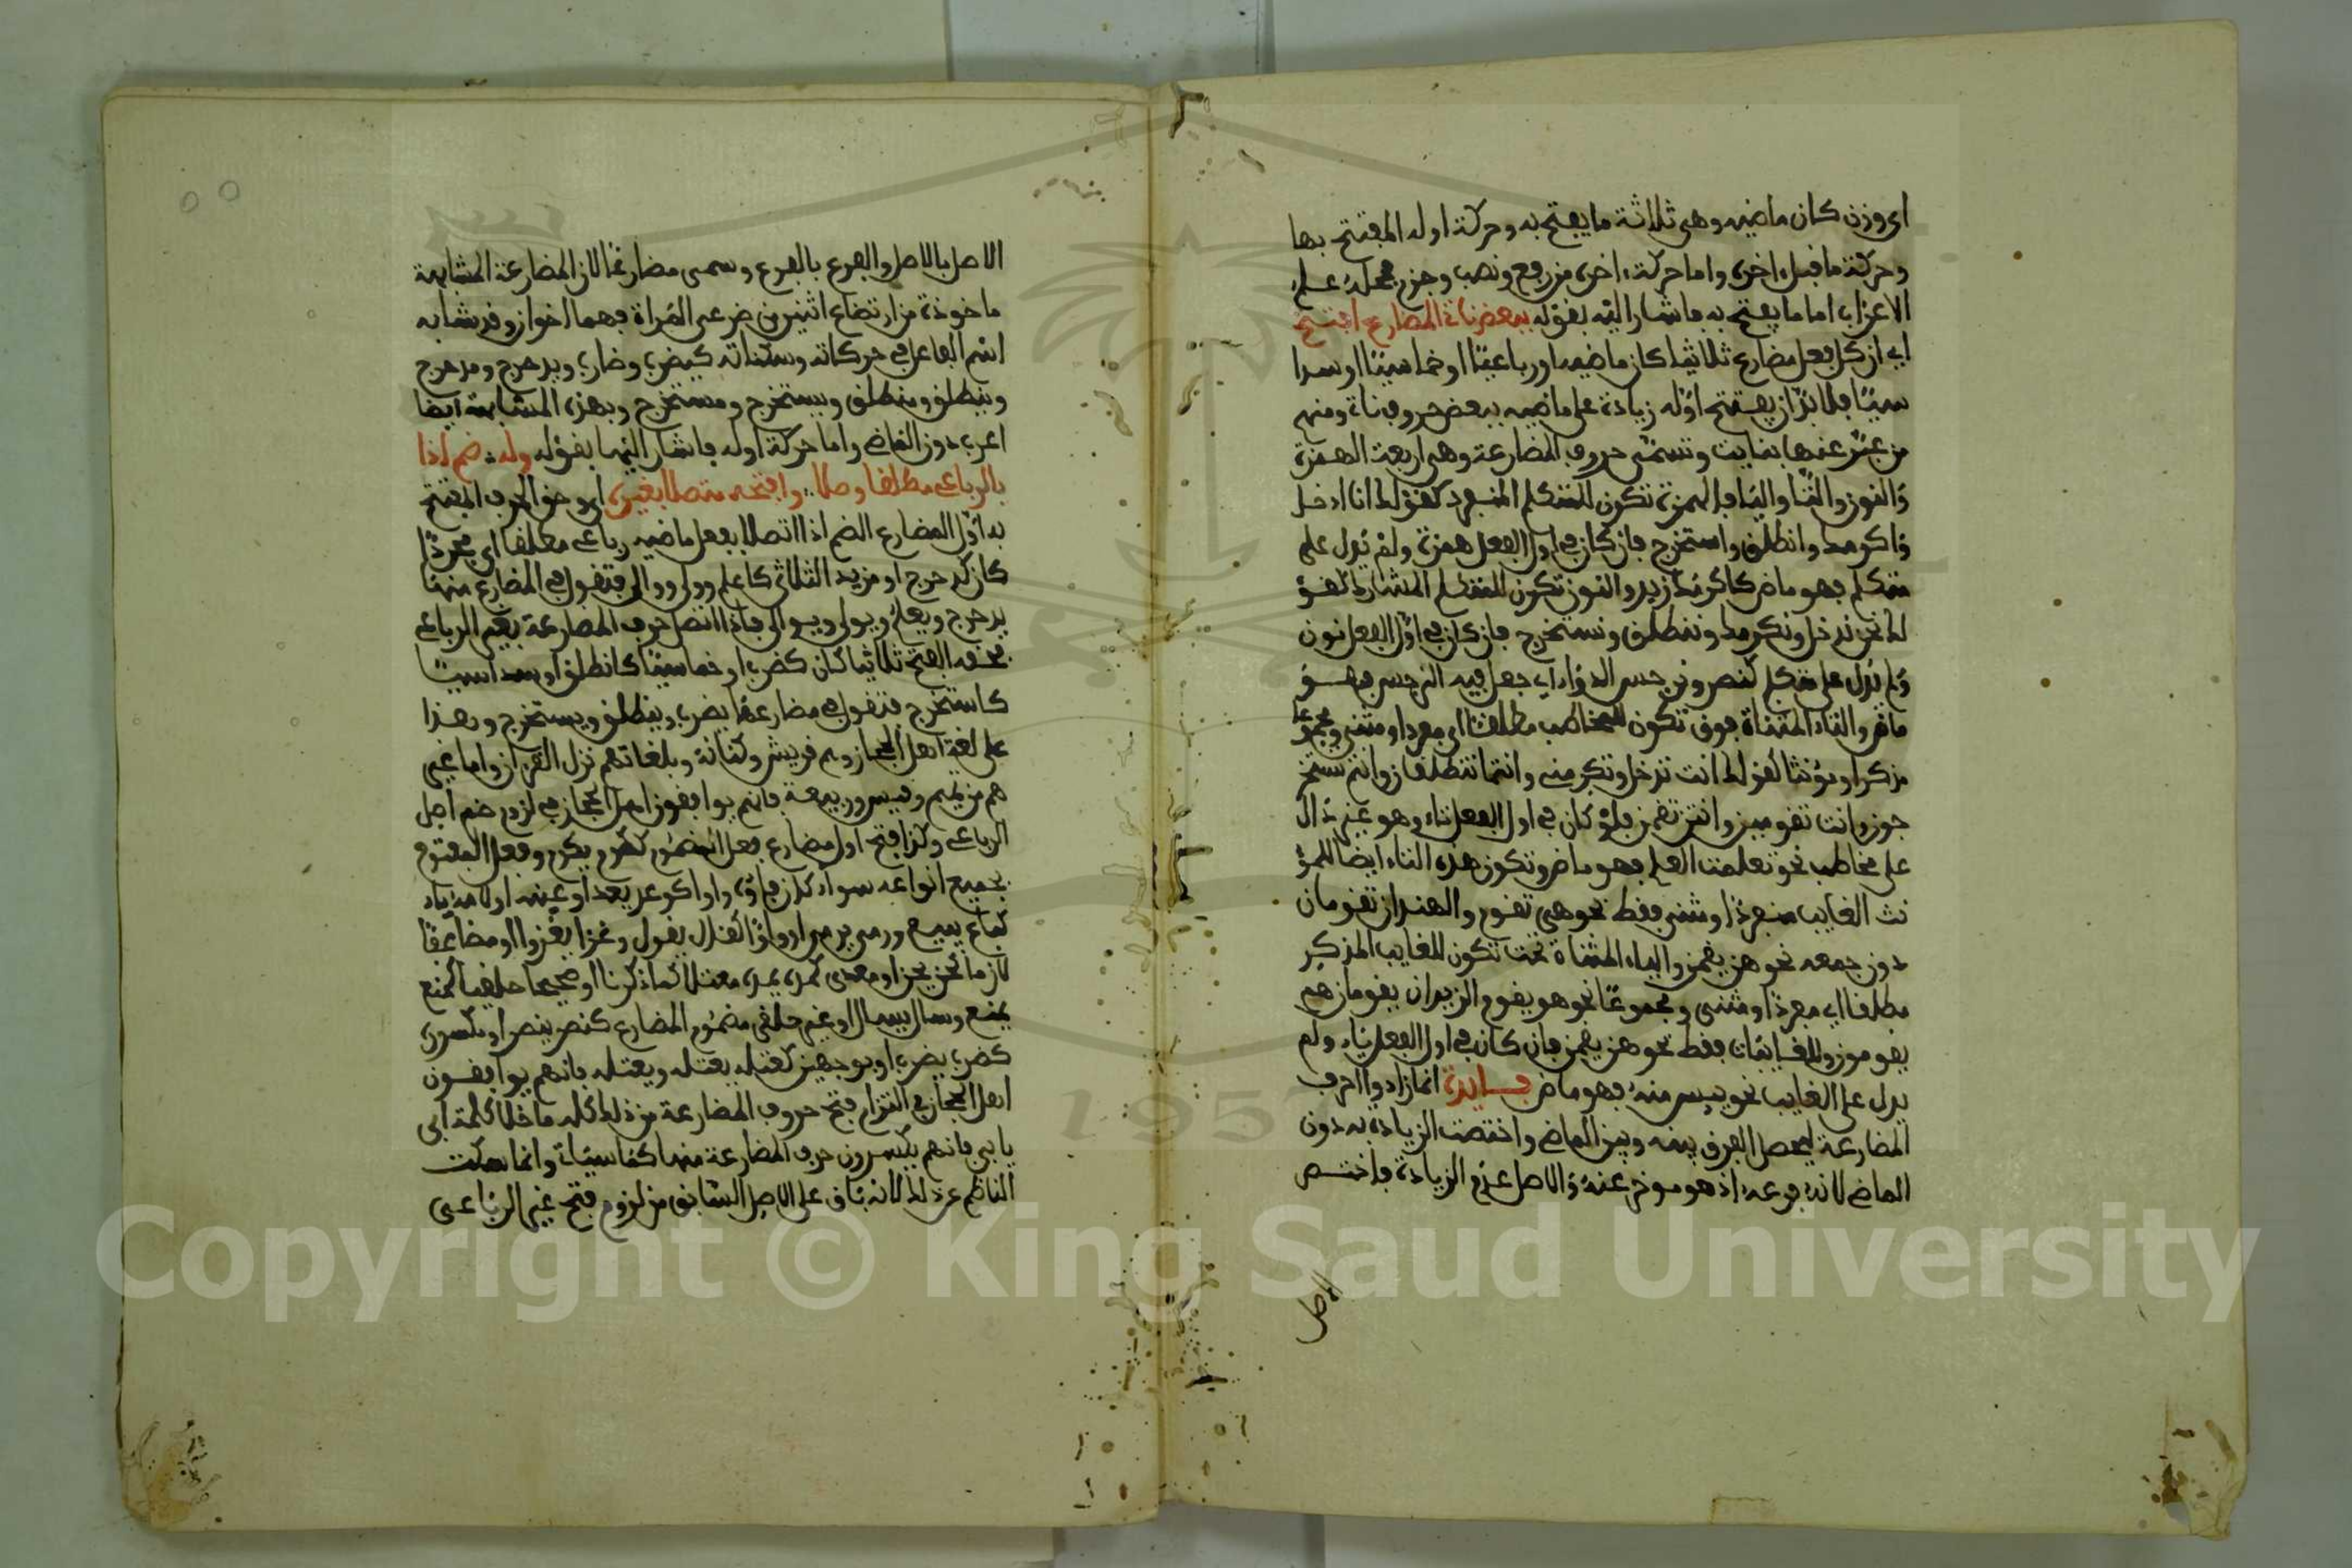 اى وزن كان ماضيه وهى ثلاثة ما يفتح به وحركة اوله المفتتح بها
وحركة ما قبل اخره واما حركة اخره من رفع ونصب وجزم فمحله علم
الاعراب اما ما يفتح به فاشار اليه بقوله ببعض نات المضارع افتتح
اي ان كل فعل مضارع ثلاثيا كان ماضيه او رباعيا او خماسيا او سدا
سيا فلا بد ان يفتتح اوله زيادة على ماضيه ببعض حروف نات ومنهم
من عبر عنها بنايت وتسمى حروف المضارعة وهى اربعة الهمزة
والنون والتا واليا فالهمزة تكون للمتكلم المنفرد كقولك انا ادخل
واكرمك وانطلق واستخرج فان كان في اول الفعل همزة ولم تدل على
متكلم فهو ماض كاكرمك زيد والنون تكون للمتكلم المشارك كقو
لك نحن ندخل ونكرمك وننطلق ونستخرج فان كان في اول الفعل نون
ولم تدل على متكلم كنصر ونرجس الدواء اي جعل فيه النرجس فهو
ماض والتاء المثناة فوق تكون للمخاطب مطلقا اي مفردا ومثنى ومجموعا
مذكرا ومؤنثا كقولك انت تدخل وتكرمني وانتما تنطلقان وانتم تستخر
جون وانت تقومين وانتن تقمن فلو كان في اول الفعل تاء وهو غير دال
على مخاطب نحو تعلمت العلم فهو ماض وتكون هذه التاء ايضا للمؤ
نث الغايب منفردا ومثنى فقط نحو هى تقوم والهندان تقومان
دون جمعه نحو هن يقمن والياء المثناة تحت تكون للغايب المذكر
مطلقا اي مفردا ومثنى ومجموعا نحو هو يقوم والزيدان يقومان هم
يقومون وللغايبات فقط نحو هن يقمن فان كان في اول الفعل ياء ولم
يدل على الغايب نحو يبس منه فهو ماض فايدة انما زادوا احرف
المضارعة ليحصل الفرق بينه وبين الماضي واختصت الزيادة به دون
الماضي لانه فرعه اذ هو موخر عنه والاصل عدم الزيادة فاختص
الاصل
الاصل بالاصل والفرع بالفرع وسمى مضارعا لان المضارعة المشابهة
ماخوذة من ارتضاع اثنين من ضرعي المراة فهما اخوان وقد شابه
اسم الفاعل في حركاته وسكناته كيضرب وضارب ويدحرج ومدحرج
وينطلق ومنطلق ويستخرج ومستخرج وبهذه المشابهة ايضا
اعرب دون الماضي واما حركة اوله فاشار اليها بقوله وله ضم اذا
بالرباعي مطلقا وصلا وافتحه متصلا بغيره اي وحق الحرف المفتتح
به اول المضارع الضم اذا اتصل بفعل ماضيه رباعي مطلقا اي مجردا
كان كدحرج او مزيد الثلاثي كاعلم وولى ووالى فتقول في المضارع منها
يدحرج ويعلم ويولي ويوالي فاذا اتصل حرف المضارعة بغير الرباعي
فحقه الفتح ثلاثيا كان كضرب او خماسيا كانطلق او سداسيا
كاستخرج فتقول في مضارعها يضرب وينطلق ويستخرج وهذا
على لغة اهل الحجاز وهم قريش وكنانة وبلغاتهم نزل القران واما غير
هم من تميم وقيس وربيعة فانهم يوافقون اهل الحجاز في لزوم ضم اول
الرباعي وكذا فتح اول مضارع فعل المضموم ككرم يكرم وفعل المفتوح
بجميع انواعه سواء كان فاؤه واوا كوعد يعد او عينه او لامه ياء
كباع يبيع ورمى يرمي او واوا كقال يقول وغزا يغزوا او مضاعفا
لازما كحن يحن او معدى كمده يمده معتلا كما ذكرنا او صحيحا حلقيا كمنع
يمنع وسال يسال او غير حلقي مضموم المضارع كنصر ينصر او مكسوره
كضرب يضرب او بوجهين كعتله يعتله ويعتله فانهم يوافقون
اهل الحجاز في التزام فتح حروف المضارعة من ذلك كله ما خلا كلمة ابى
يابى فانهم يكسرون حرف المضارعة منها كما سيات وانما سكت
الناظم عن ذلك لانه باق على الاصل السابق من لزوم فتح غير الرباعي
Copyright © King Saud University
195